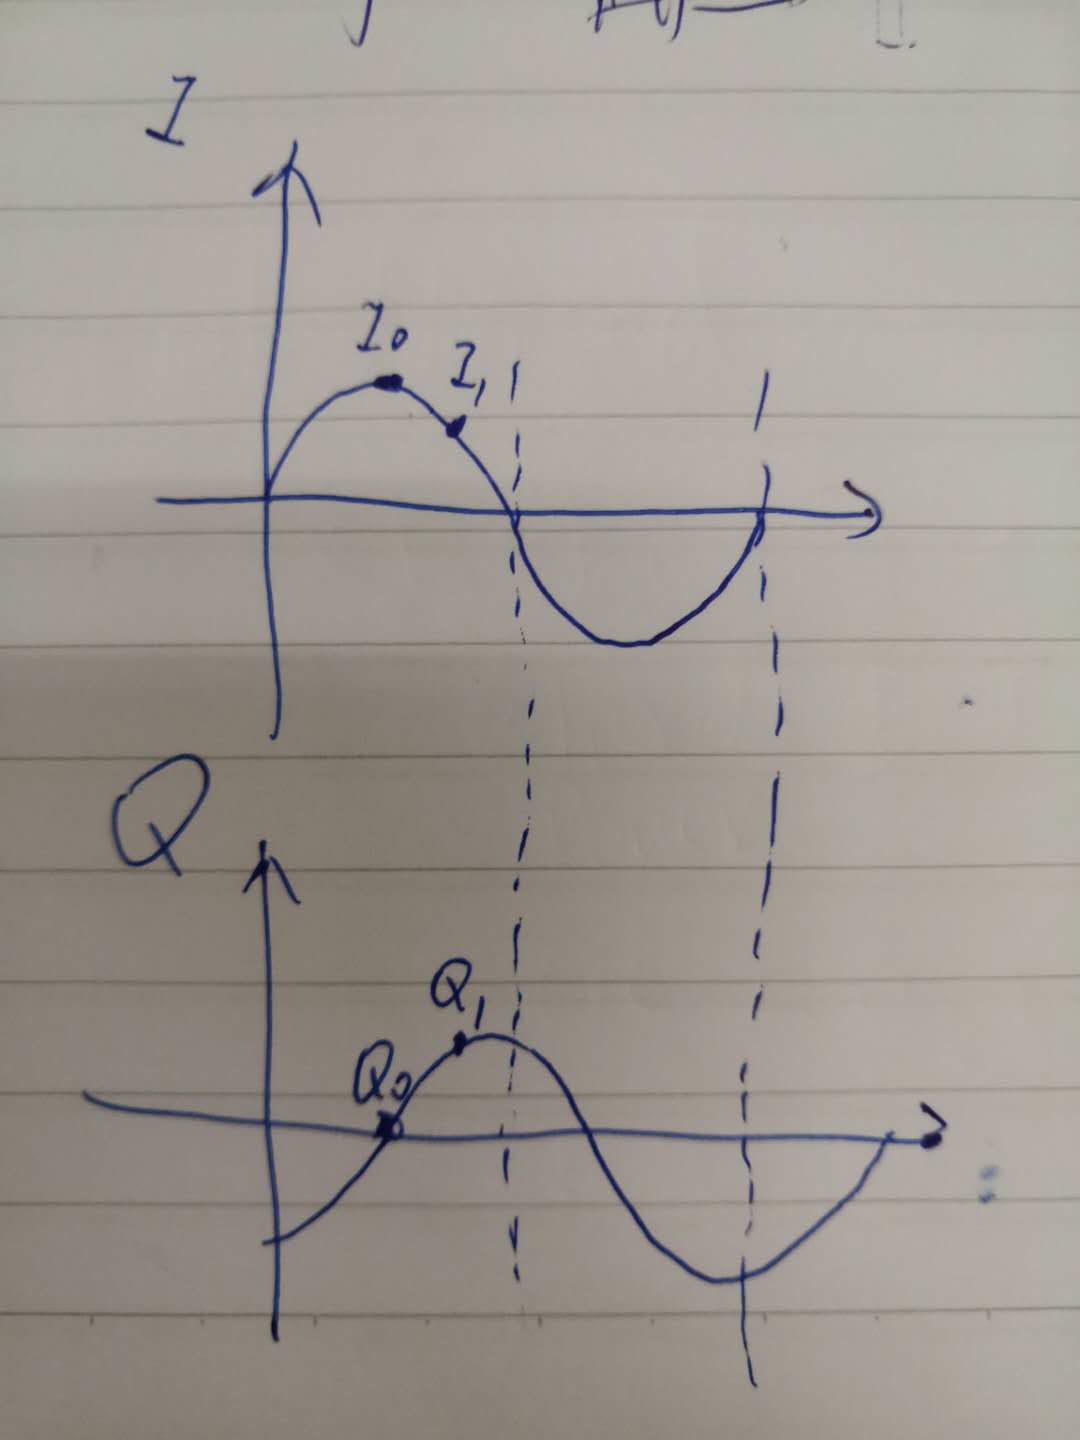 I
I₀
I₁
Q
Q₁
Q₀